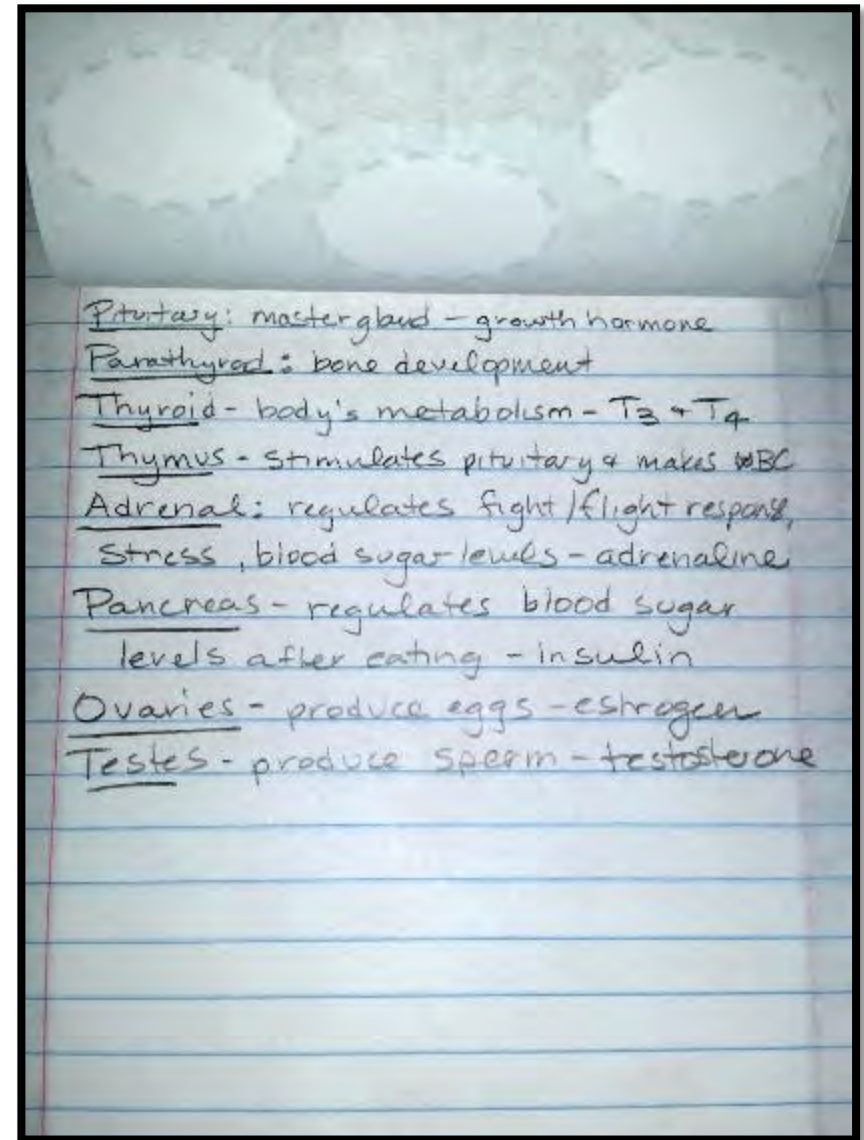 Pituitary: master gland - growth hormone
Parathyrod: bone development
Thyroid - body's metabolism - T3 + T4
Thymus - stimulates pituitary & makes WBC
Adrenal: regulates fight/flight response,
stress, blood sugar levels - adrenaline
Pancreas - regulates blood sugar
levels after eating - insulin
Ovaries - produce eggs - estrogen
Testes - produce sperm - testosterone